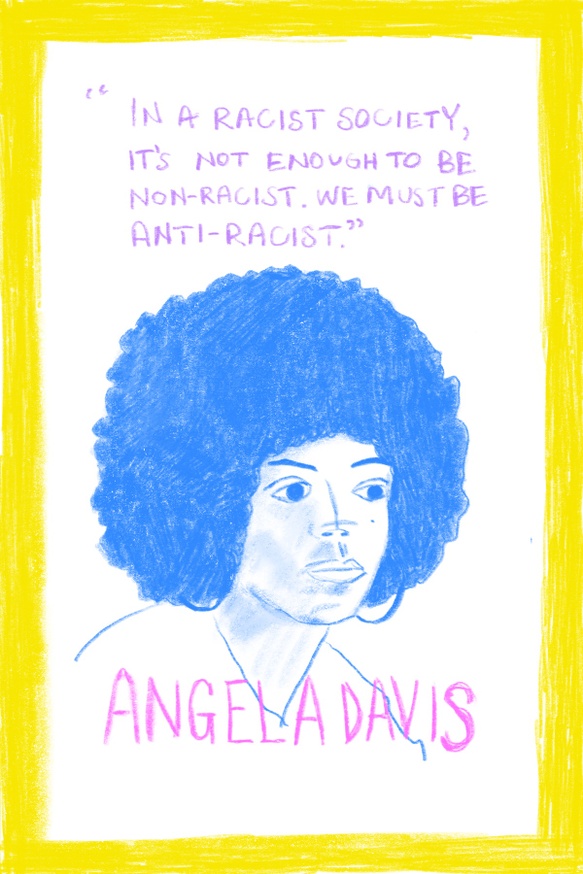 “ IN A RACIST SOCIETY,
IT'S NOT ENOUGH TO BE
NON-RACIST. WE MUST BE
ANTI-RACIST.”
ANGELA DAVIS